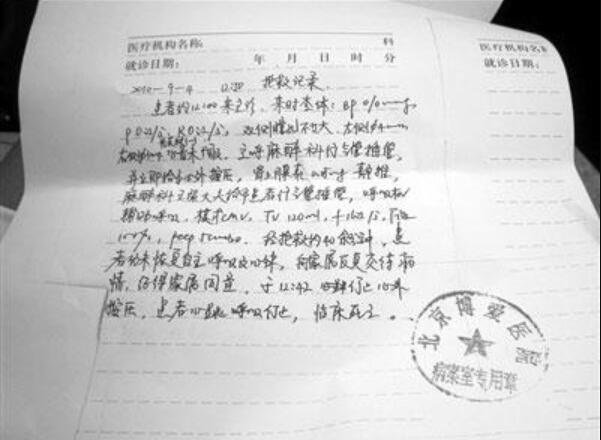 医疗机构名称: 科
就诊日期: 年 月 日 时 分
2010-9-4 12:50 抢救记录
患者约12:00来急诊，来时查体：BP 0/0mmHg
P 0次/分，R 0次/分，双侧瞳孔不等大，
呼麻醉科行气管插管，
并立即给予心外按压，肾上腺素 静推，
麻醉科 大夫给予患者行气管插管，呼吸机
辅助呼吸，模式CMV，TV 120ml，f 16次/分，FiO2
100%，peep 5cmH2O。经抢救约40余分钟，患
者仍未恢复自主呼吸及心跳，向家属反复交待病
情，征得家属同意，于12:42 停止心外
按压，患者心跳呼吸停止，临床死亡。
医疗机构名称
就诊日期:
北京博爱医院
病案室专用章